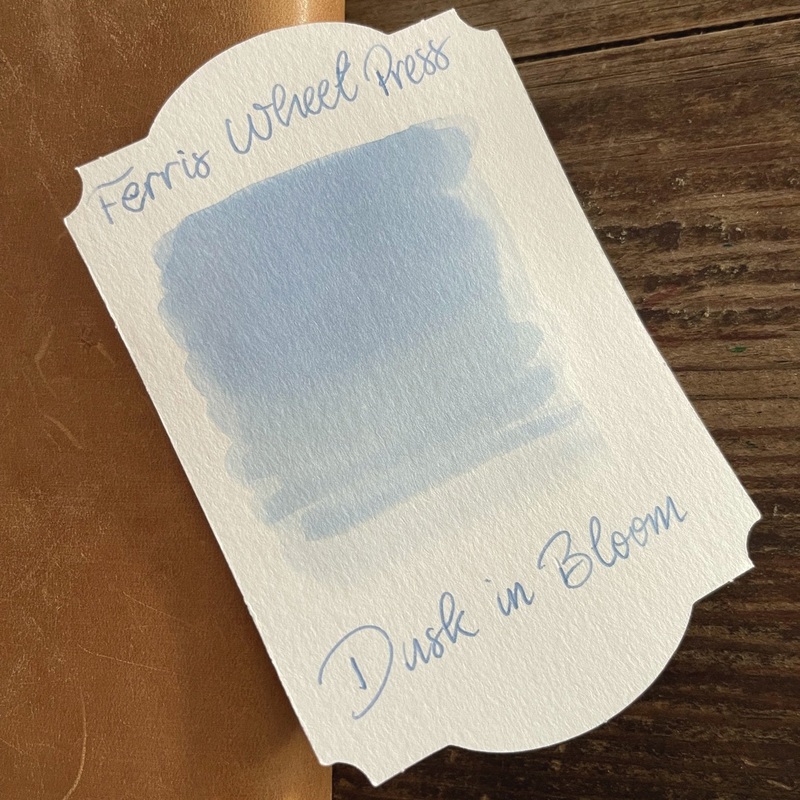 Ferris Wheel Press
Dusk in Bloom